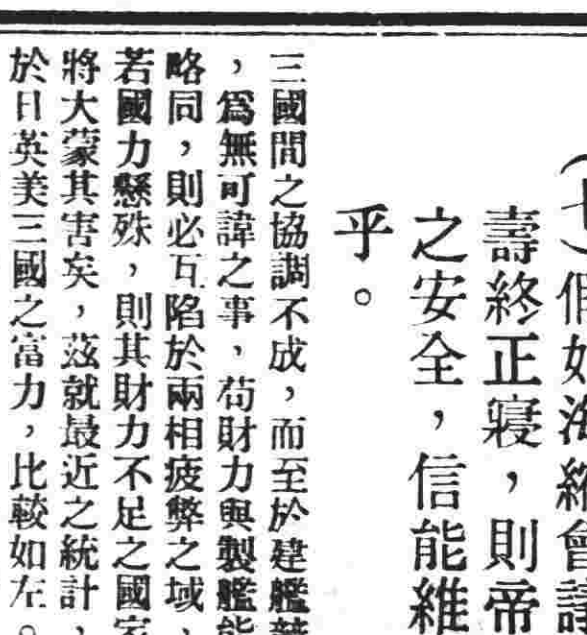 假如海縮會議
壽終正寢，則帝
之安全，信能維
乎。
三國間之協調不成，而至於建艦競
，爲無可諱之事，苟財力與製艦能
略同，則必互陷於兩相疲弊之域，
若國力懸殊，則其財力不足之國家
將大蒙其害矣，茲就最近之統計，
於日英美三國之富力，比較如左。